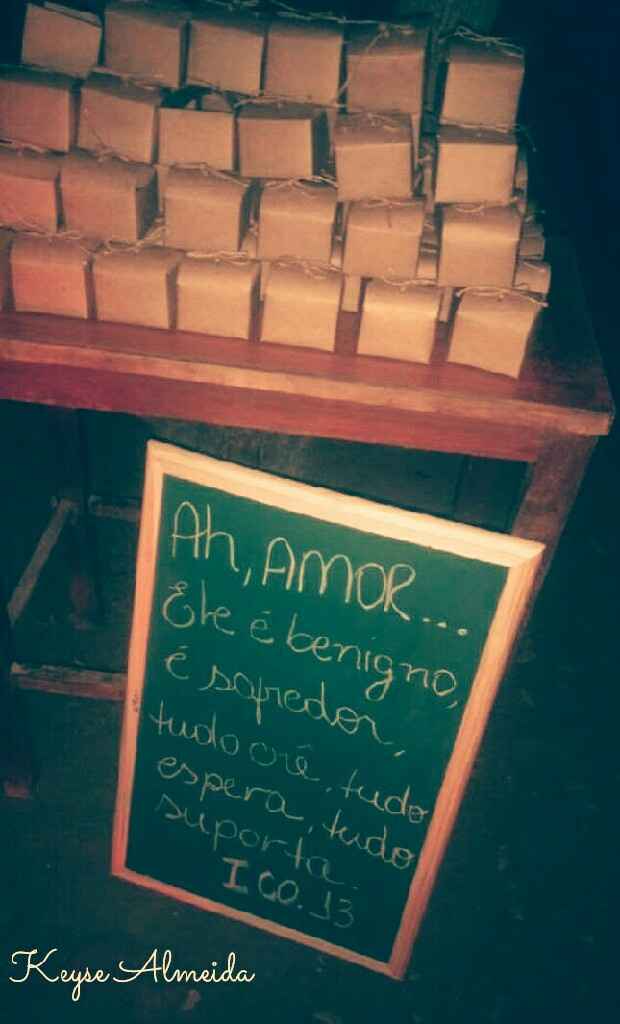 Ah, AMOR...
Ele é benigno,
é sofredor,
tudo crê, tudo
espera, tudo
suporta.
I CO. 13
Keyse Almeida